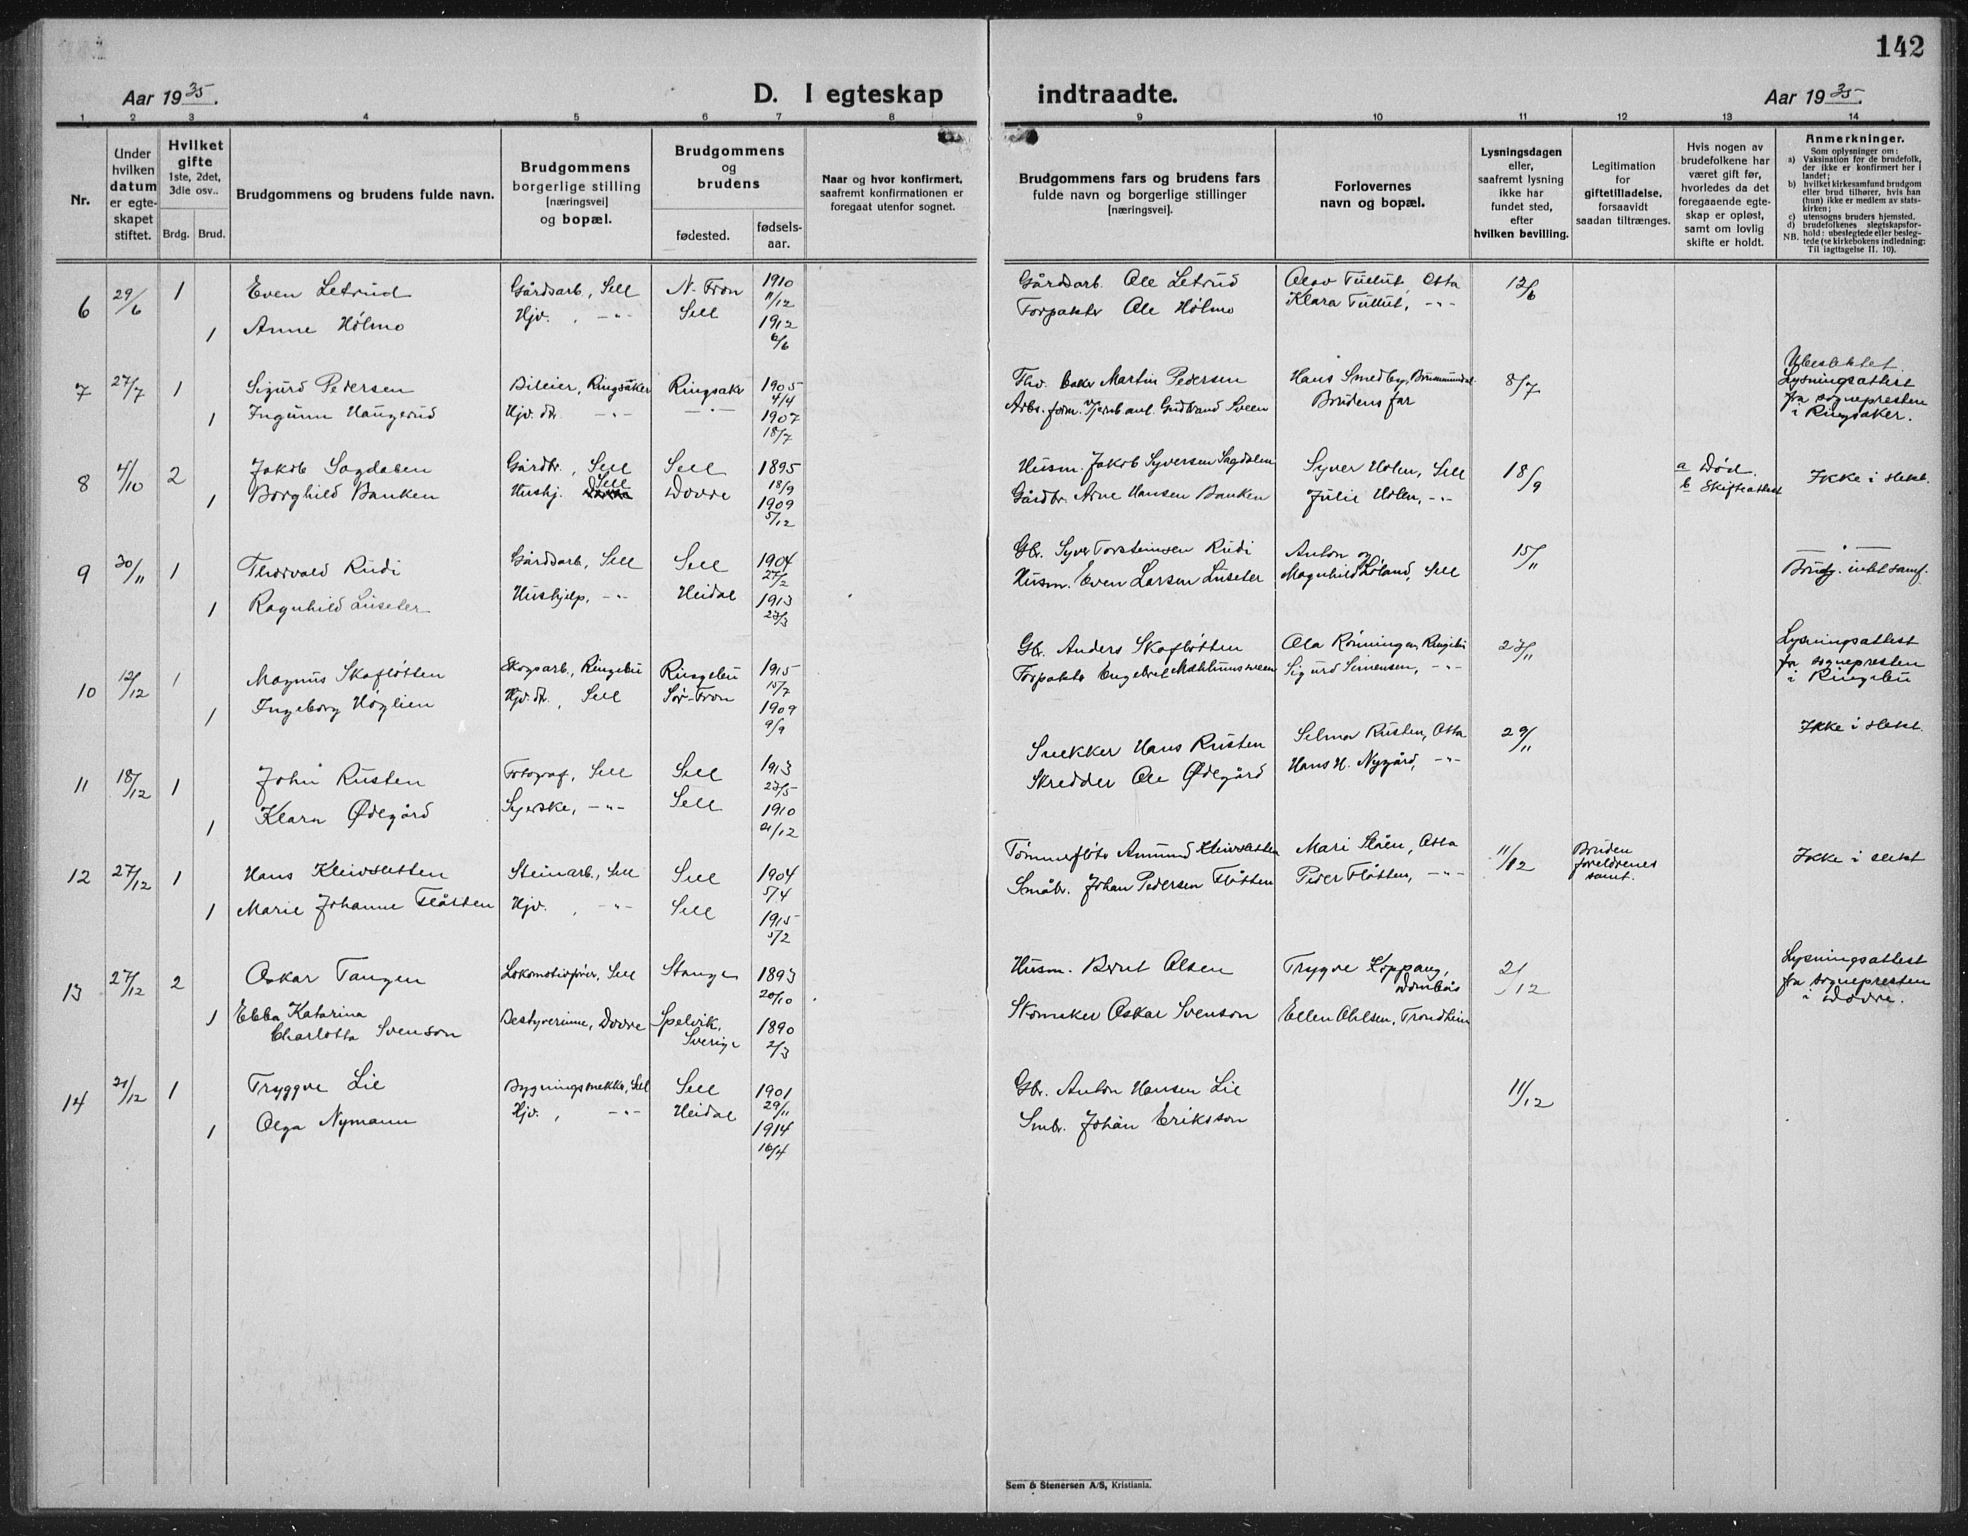 142
Aar 1935.
D. I egteskap
indtraadte.
Aar 1935.
1 2 3 4 5 6 7 8 9 10 11 12 13 14
Nr.
Under
hvilken
datum
er egte-
skapet
stiftet.
Hvilket
gifte
1ste, 2det,
3die osv..
Brdg. Brud.
Brudgommens og brudens fulde navn.
Brudgommens
borgerlige stilling
[næringsvei]
og bopæl.
Brudgommens
og
brudens
fødested.
fødsels-
aar.
Naar og hvor konfirmert,
saafremt konfirmationen er
foregaat utenfor sognet.
Brudgommens fars og brudens fars
fulde navn og borgerlige stillinger
[næringsvei].
Forlovernes
navn og bopæl.
Lysningsdagen
eller,
saafremt lysning
ikke har
fundet sted,
efter
hvilken bevilling.
Legitimation
for
giftetilladelse,
forsaavidt
saadan tiltrænges.
Hvis nogen av
brudefolkene har
været gift før,
hvorledes da det
foregaaende egte-
skap er opløst,
samt om lovlig
skifte er holdt.
Anmerkninger.
Som oplysninger om:
a) Vaksination før de brudefolk,
der ikke er konfirmert her i
landet;
b) hvilket kirkesamfund brudgom
eller brud tilhører, hvis han
(hun) ikke er medlem av stats-
kirken;
c) utensogns bruders hjemsted.
d) brudefolkenes slegtskapsfor-
hold: ubeslegtede eller besleg-
NB. tede (se kirkebokens indledning:
Til iagttagelse II. 10).
6 29/6 1 Even Letrud Gårdsarb., Sell N. Fron 1910 11/12 Gårdsarb. Ole Letrud Olav Tullut, Otta 12/6
1 Anne Hølmo Hjv. , -"- Sell 1912 6/6 Forpakter Ole Hølmo Klara Tullut, -"-
7 27/7 1 Sigurd Pedersen Bileier, Ringsaker Ringsaker 1905 4/4 Thv. Martin Pedersen Hans Smedby, Brummundal 8/7 Ubeslektet.
Lysningsattest
fra sognepresten
i Ringsaker.
1 Ingunn Haugerud Hjv. dtr. -"- -"- 1907 18/7 Arbs.form. v/jernb.anl. Gudbrand Sveen Brudens far
8 4/10 2 Jakob Sagdalen Gårdbr., Sell Sell 1895 18/9 Husm. Jakob Syversen Sagdalen Syver Holen, Sell 18/9 a Død.
b Skifteattest Ikke i slekt.
1 Borghild Banken Hushj. Sell Dovre 1909 5/12 Gårdbr. Arne Hansen Banken Julie Holen, -"-
9 30/11 1 Thorvald Rudi Gårdsarb., Sell Sell 1904 27/2 Gbr. Syver Torsteinsen Rudi Anton og 15/11 — " —
Brudg. intet samf.
1 Ragnhild Luseter Hushjelp, -"- Heidal 1913 23/3 Husm. Even Larsen Luseter Magnhild Løland, Sell
10 12/12 1 Magnus Skafløtten Skogsarb., Ringebu Ringebu 1915 15/7 Gbr. Anders Skafløtten Ola Rønningen, Ringebu 23/11 Lysningsattest
fra sognepresten
i Ringebu
1 Ingeborg Høglien Hjv. dtr., Sell Sør-Fron 1909 9/9 Forpakter Engebret Mæhlumsveen Sigurd Simensen, -"-
11 18/12 1 John Rusten Fotograf, Sell Sell 1913 23/5 Snekker Hans Rusten Selmer Rusten, Otta 29/11 Ikke i slekt.
1 Klara Ødegård Syerske, -"- Sell 1910 21/12 Skredder Ole Ødegård Hans H. Nygård, -"-
12 27/12 1 Hans Kleivsletten Steinarb., Sell Sell 1904 5/4 Tømmerfløter Amund Kleivsletten Mari Slåen, Otta 11/12 Bruden
foreldrenes
samt. Ikke i slekt
1 Marie Johanne Flåtten Hjv. , -"- Sell 1915 5/2 Småbr. Johan Pedersen Flåtten Peder Flåtten, -"-
13 27/12 2 Oskar Tangen Lokomotivfører, Sell Stange 1893 20/10 Husm. Bernt Olsen Trygve Koppang,
Dombås 21/12 Lysningsattest
fra sognepresten
i Dovre.
1 Ebba Katarina
Charlotta Svenson Bestyrerinne, Dovre Spelvik,
Sverige 1890 2/3 Skomaker Oskar Svenson Ellen Ohlsen, Trondheim
14 21/12 1 Tryggve Lie Bygningssnekker, Sel Sell 1901 29/11 Gbr. Anton Hansen Lie 11/12
1 Olga Nymann Hjv. , -"- Heidal 1914 16/4 Smbr. Johan Eriksson
Sem & Stenersen A/S, Kristiania.